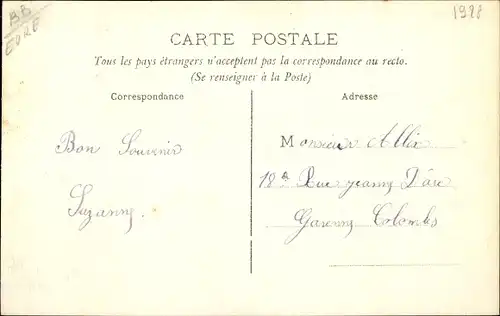 BB
EURE
1928
CARTE POSTALE
Tous les pays étrangers n'acceptent pas la correspondance au recto.
(Se renseigner à la Poste)
Correspondance
Adresse
Bon Souvenir
Suzanne.
Monsieur Allix
18 Rue jeanne D'arc
Garenne Colombes